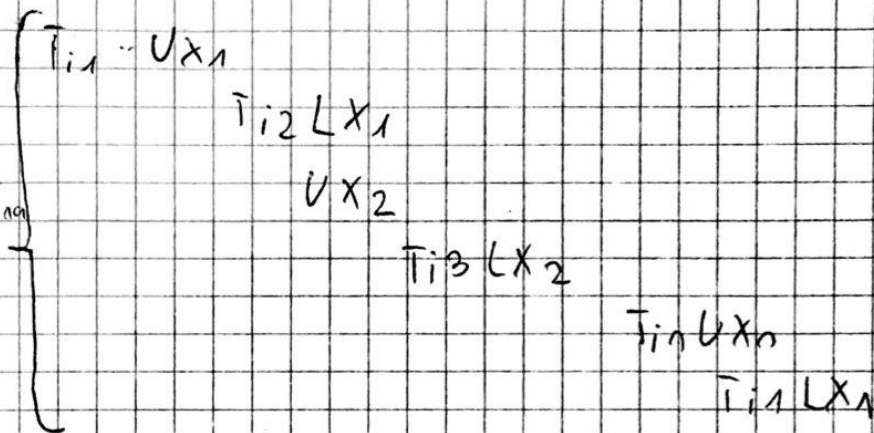 Ti1 .. UX1
Ti2 LX1
UX2
Ti3 LX2
Tin UXn
Ti1 LX1